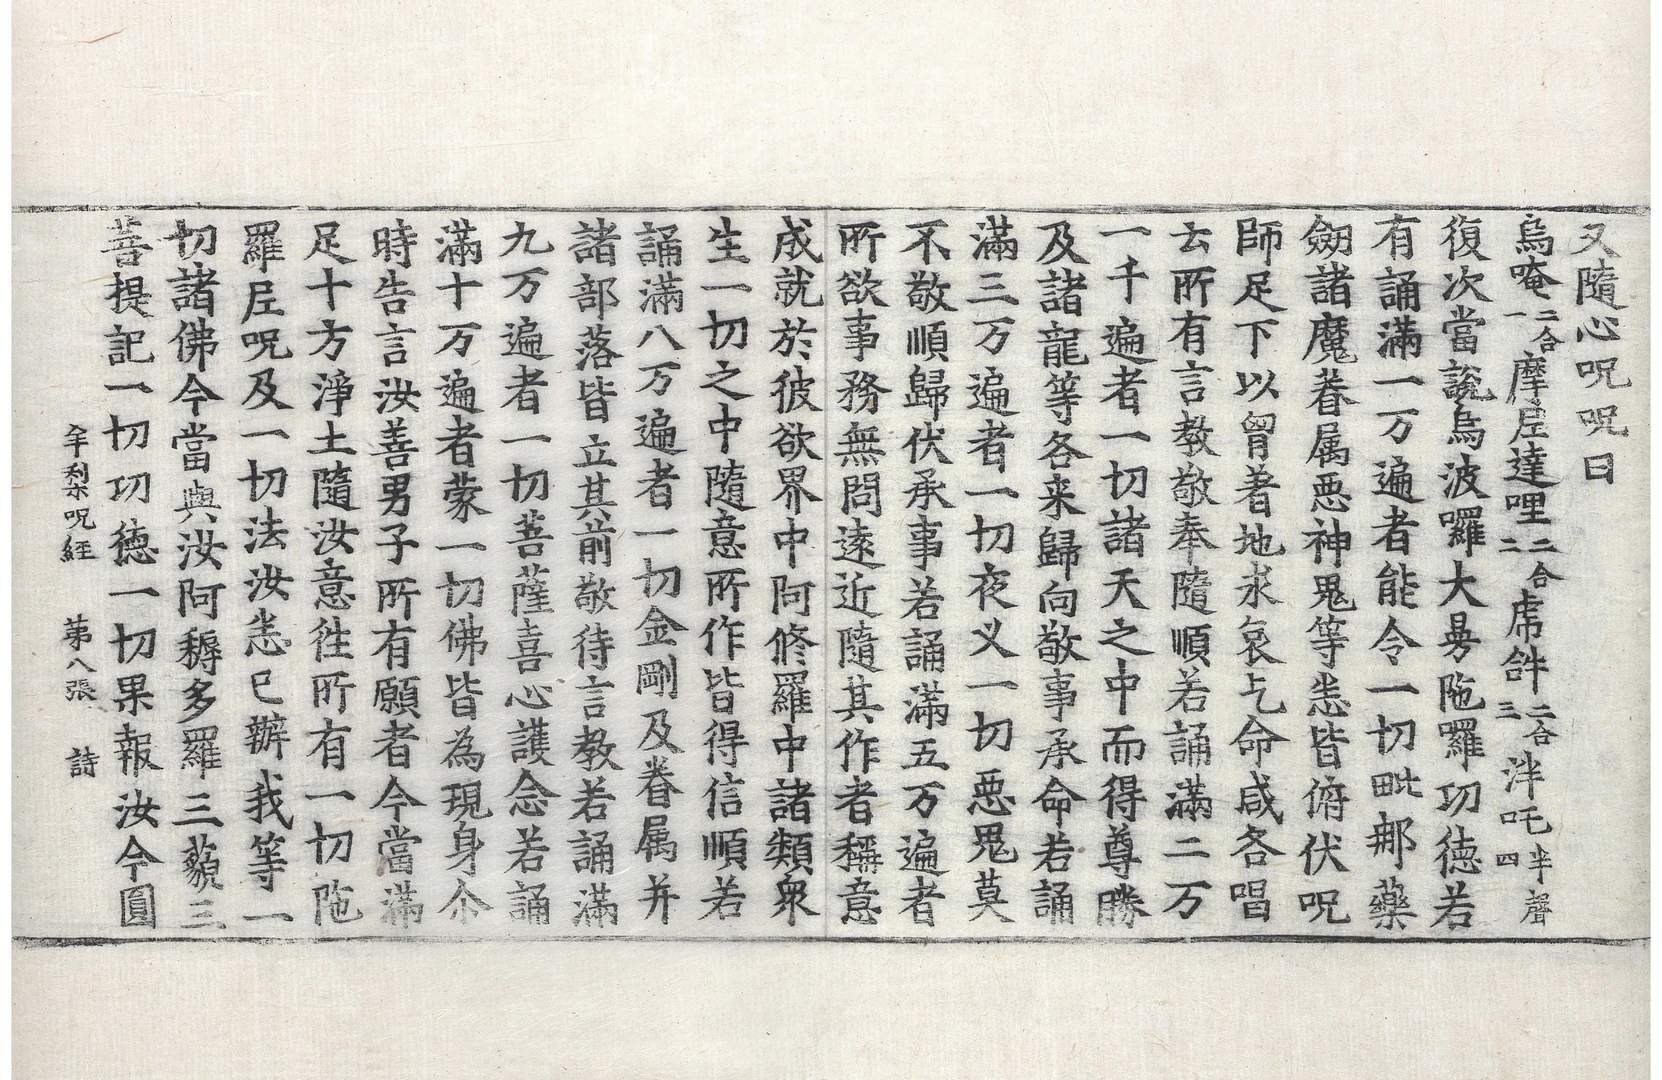 又隨心呪呪曰
烏唵二合一摩尼達哩二合二虎𤙖二合三泮吒半聲四
復次當說烏波囉大曼陁羅功德若
有誦滿一万遍者能令一切毗那藥
劒諸魔眷属惡神鬼等悉皆俯伏呪
師足下以𮌎著地求哀乞命咸各唱
云所有言教敬奉隨順若誦滿二万
一千遍者一切諸天之中而得尊勝
及諸龍等各来歸向敬事承命若誦
滿三万遍者一切夜义一切惡鬼莫
不敬順歸伏承事若誦滿五万遍者
所欲事務無問遠近隨其作者稱意
成就於彼欲界中阿修羅中諸類衆
生一切之中隨意所作皆得信順若
誦滿八万遍者一切金剛及眷属并
諸部落皆立其前敬待言教若誦滿
九万遍者一切菩薩喜心護念若誦
滿十万遍者蒙一切佛皆為現身尒
時告言汝善男子所有願者今當滿
足十方淨土隨汝意徃所有一切陁
羅尼呪及一切法汝悉已辦我等一
切諸佛今當與汝阿耨多羅三藐三
菩提記一切功德一切果報汝今圓
牟梨呪経 苐八張 詩